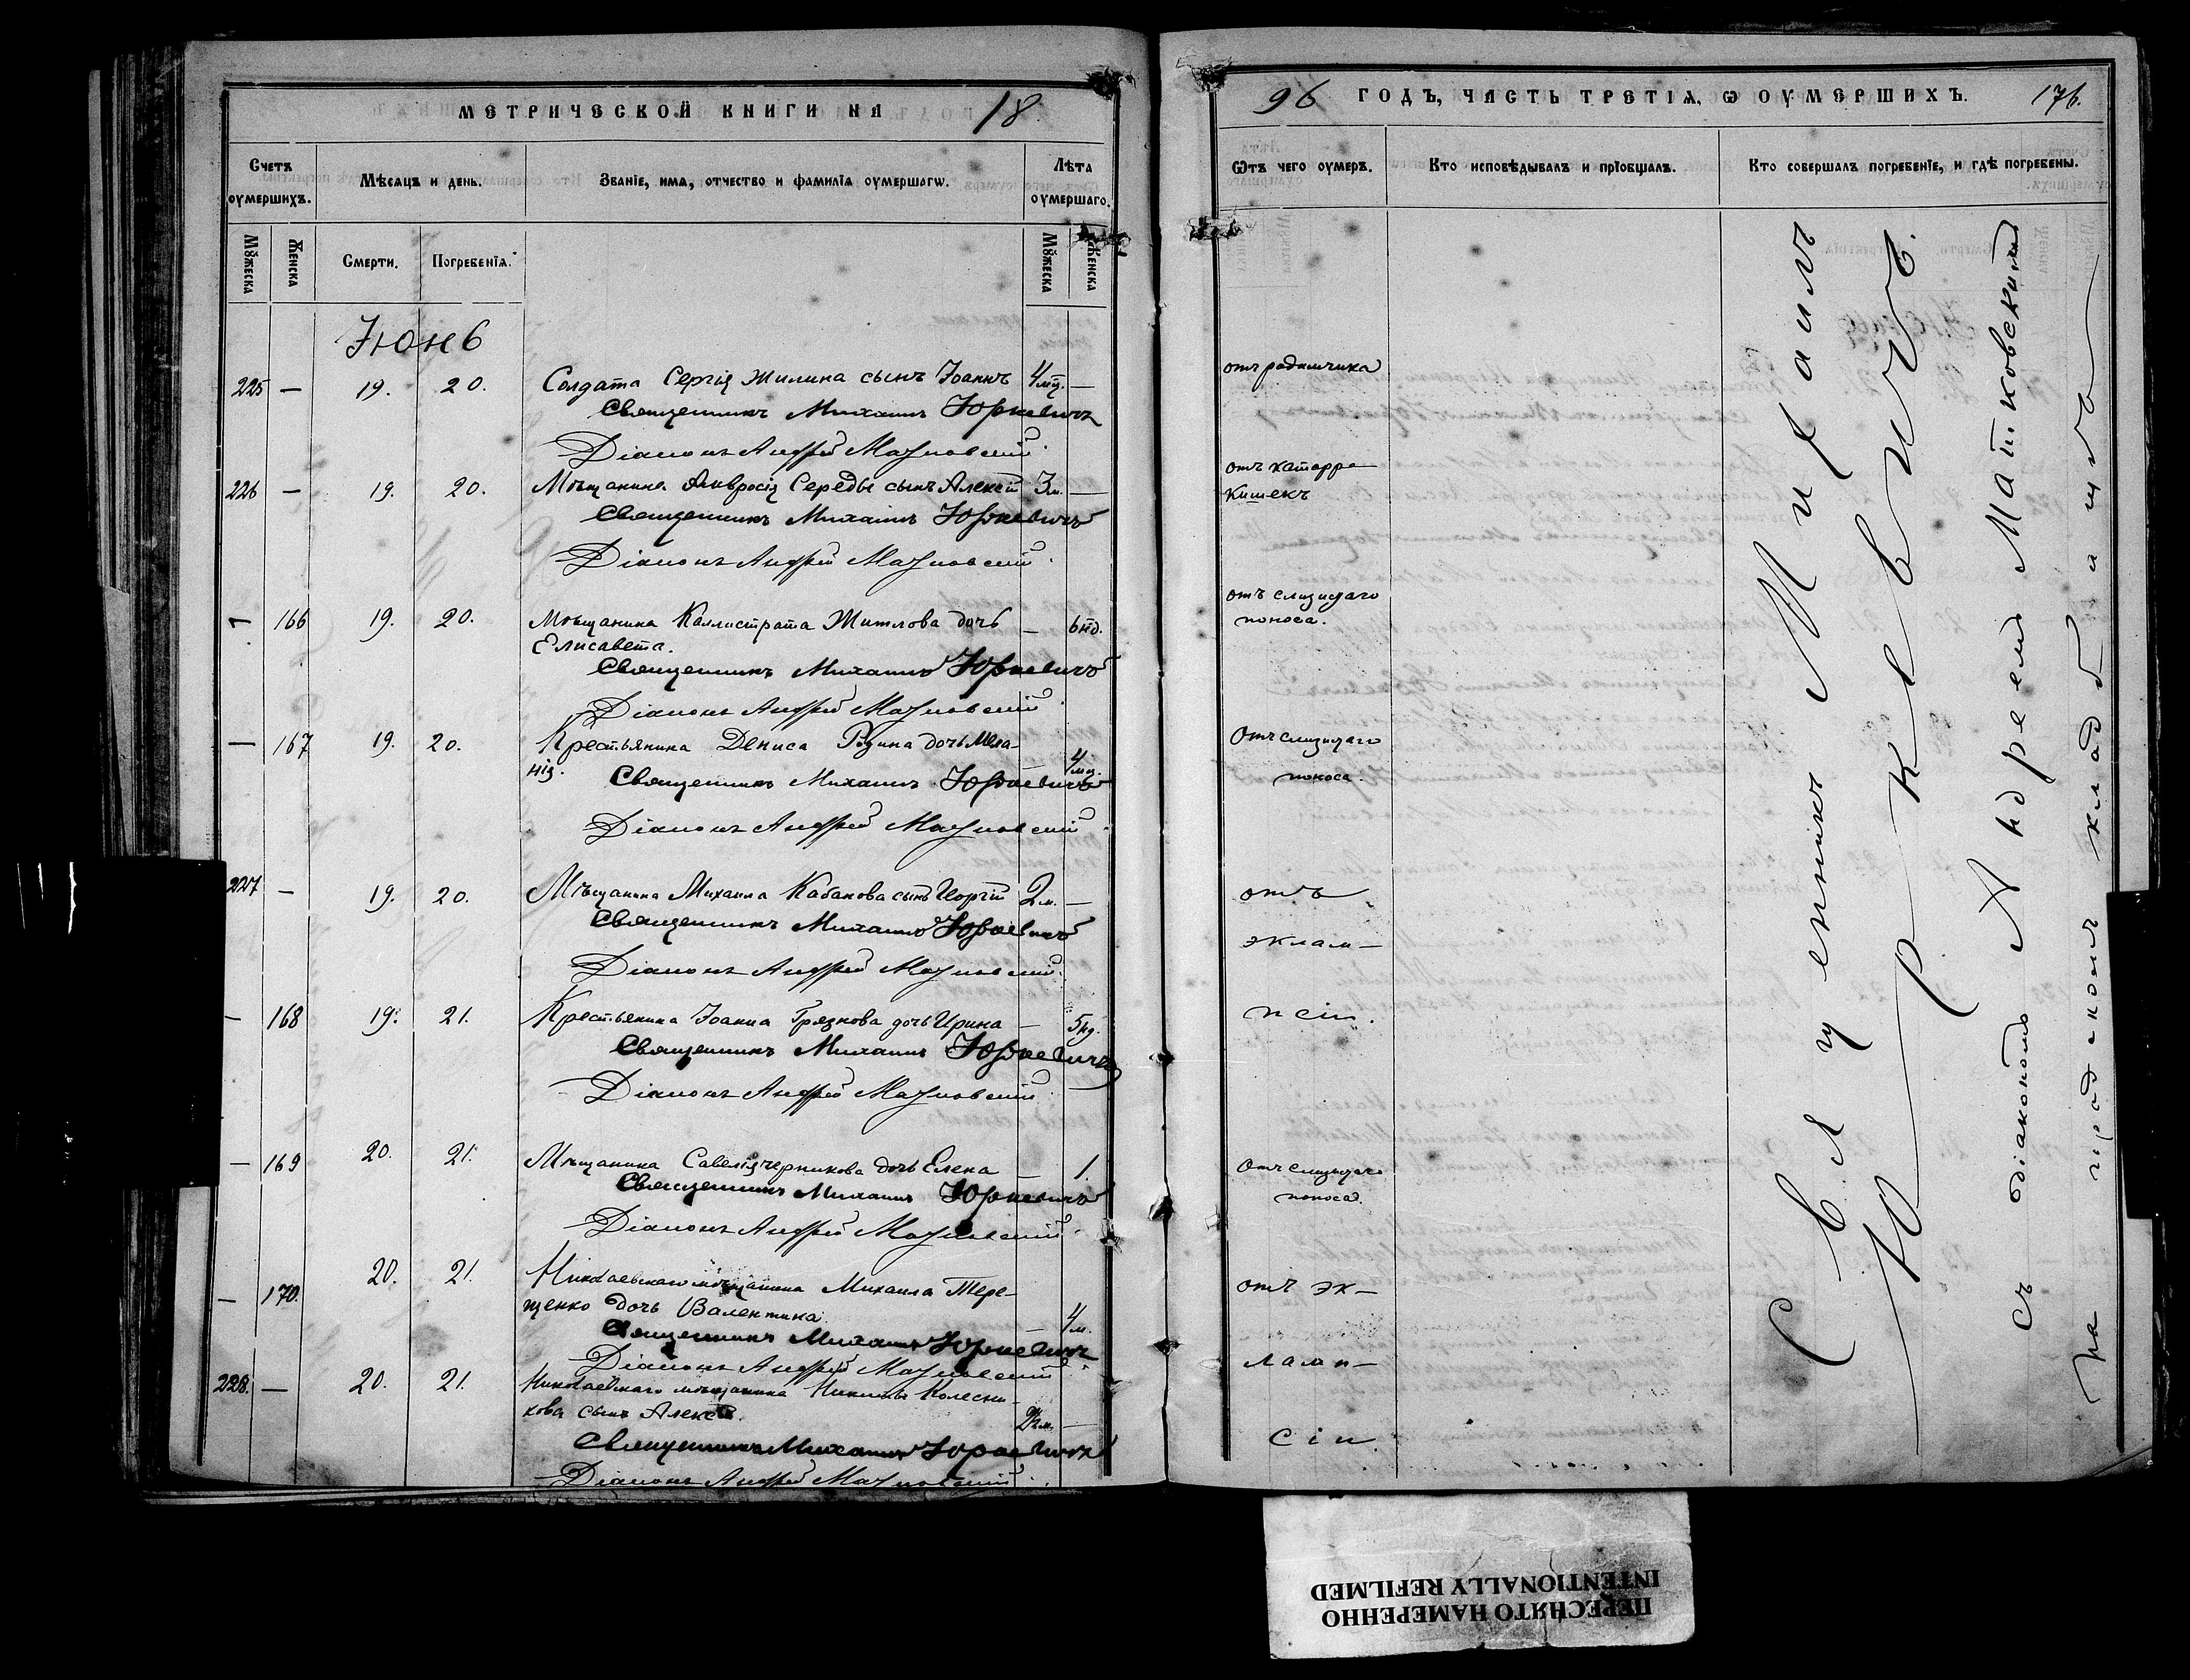 МЕТРИЧЕСКОЙ КНИГИ НА 18
Счетъ оумершихъ.
Мѣсяцъ и день.
Званіе, имя, отчество и фамилія оумершагѡ.
Лѣта оумершаго.
Мꙋжеска
Женска
Смерти.
Погребенїя.
Мꙋжеска
Женска
Іюнь
225 — 19. 20. Солдата Сергія Жилина сынъ Іоаннъ 4 мц. —
Священникъ Михаилъ Юркевичъ
Діаконъ Андрей Матковскій
226 — 19. 20. Мѣщанина Амвросія Середы сынъ Алексій 3 м. —
Священникъ Михаилъ Юркевичъ
Діаконъ Андрей Матковскій
— 166 19. 20. Мѣщанина Каллистрата Житлова дочь — 6 нд.
Елисавета.
Священникъ Михаилъ Юркевичъ
Діаконъ Андрей Матковскій
— 167 19. 20. Крестьянина Дениса дочь Мела- — 4 мц.
нія.
Священникъ Михаилъ Юркевичъ
Діаконъ Андрей Матковскій
227 — 19. 20. Мѣщанина Михаила Кабакова сынъ Георгій 2 м. —
Священникъ Михаилъ Юркевичъ
Діаконъ Андрей Матковскій
— 168 19. 21. Крестьянина Іоанна Грязнова дочь Ирина — 5 нд.
Священникъ Михаилъ Юркевичъ
Діаконъ Андрей Матковскій
— 169 20. 21. Мѣщанина Савелія Черникова дочь Елена — 1.
Священникъ Михаилъ Юркевичъ
Діаконъ Андрей Матковскій
— 170. 20. 21. Николаевскаго мѣщанина Михаила Тере-
щенко дочь Валентина. — 4 м.
Священникъ Михаилъ Юркевичъ
Діаконъ Андрей Матковскій
228. — 20. 21. Николаевскаго мѣщанина Никиты Колесни-
кова сынъ Алексій. —
Священникъ Михаилъ Юркевичъ
Діаконъ Андрей Матковскій
96 ГОДЪ, ЧАСТЬ ТРЕТІЯ, Ѡ ОУМЕРШИХЪ. 176.
Ѿтъ чего оумеръ.
Кто исповѣдывалъ и прїобщалъ.
Кто совершалъ погребенїе, и гдѣ погребены.
отъ родимчика
отъ катарра
кишекъ
отъ слизистаго
поноса.
Отъ слизистаго
поноса.
отъ
эклам—
псіи.
Отъ слизистаго
поноса.
отъ эк—
ламп—
сіи.
Священникъ Михаилъ
Юркевичъ.
съ діакономъ Андреемъ Матковскимъ
на городскомъ кладбищѣ
ПЕРЕСНЯТО НАМЕРЕННО
INTENTIONALLY REFILMED